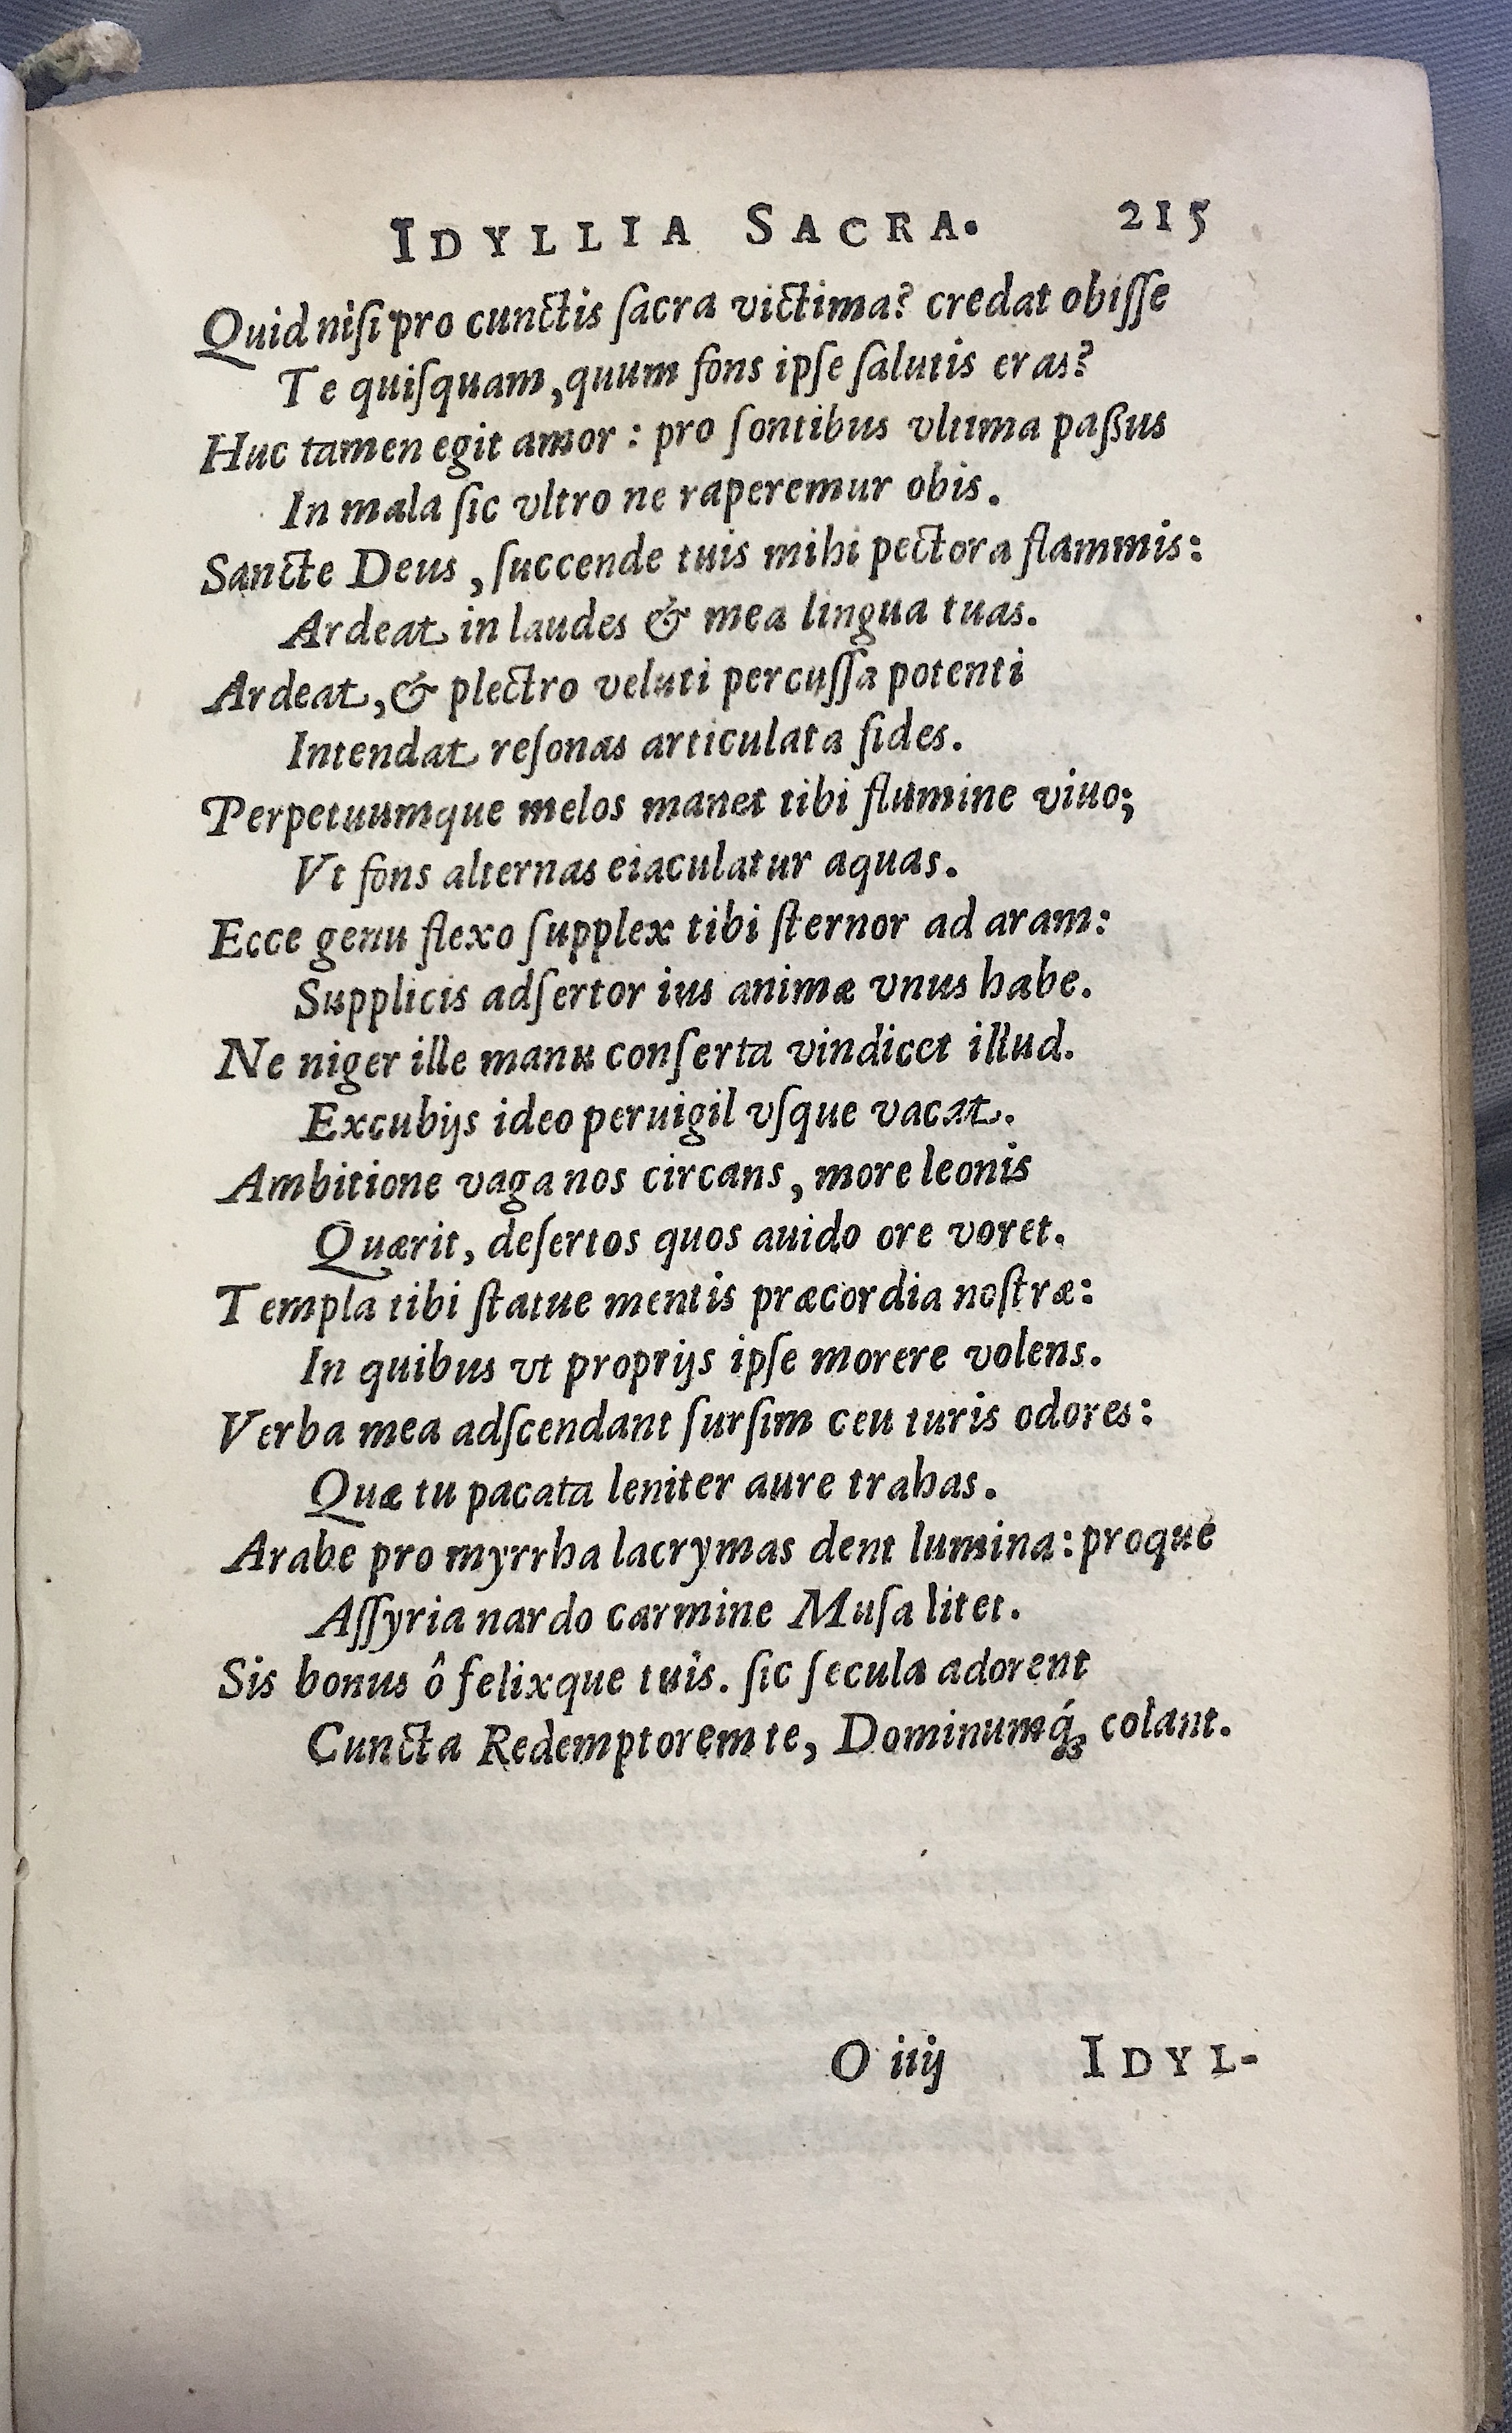 IDYLLIA SACRA. 215
Quid niſi pro cunctis ſacra victima? credat obiſſe
Te quiſquam, quum fons ipſe ſalutis eras?
Huc tamen egit amor : pro ſontibus vltima paßus
In mala ſic vltro ne raperemur obis.
Sancte Deus, ſuccende tuis mihi pectora flammis:
Ardeat in laudes & mea lingua tuas.
Ardeat, & plectro veluti percuſſa potenti
Intendat reſonas articulata fides.
Perpetuumque melos manet tibi flumine viuo;
Vt fons alternas eiaculatur aquas.
Ecce genu flexo ſupplex tibi ſternor ad aram:
Supplicis adſertor ius animæ vnus habe.
Ne niger ille manu conſerta vindicet illud.
Excubijs ideo peruigil vſque vacat.
Ambitione vaga nos circans, more leonis
Quærit, deſertos quos auido ore voret.
Templa tibi ſtatue mentis præcordia noſtræ:
In quibus vt proprijs ipſe morere volens.
Verba mea adſcendant ſurſim ceu turis odores:
Quæ tu pacata leniter aure trahas.
Arabe pro myrrha lacrymas dent lumina: proque
Aſſyria nardo carmine Muſa litet.
Sis bonus ô felixque tuis. ſic ſecula adorent
Cuncta Redemptorem te, Dominumq́ꝫ colant.
O iiij IDYL-